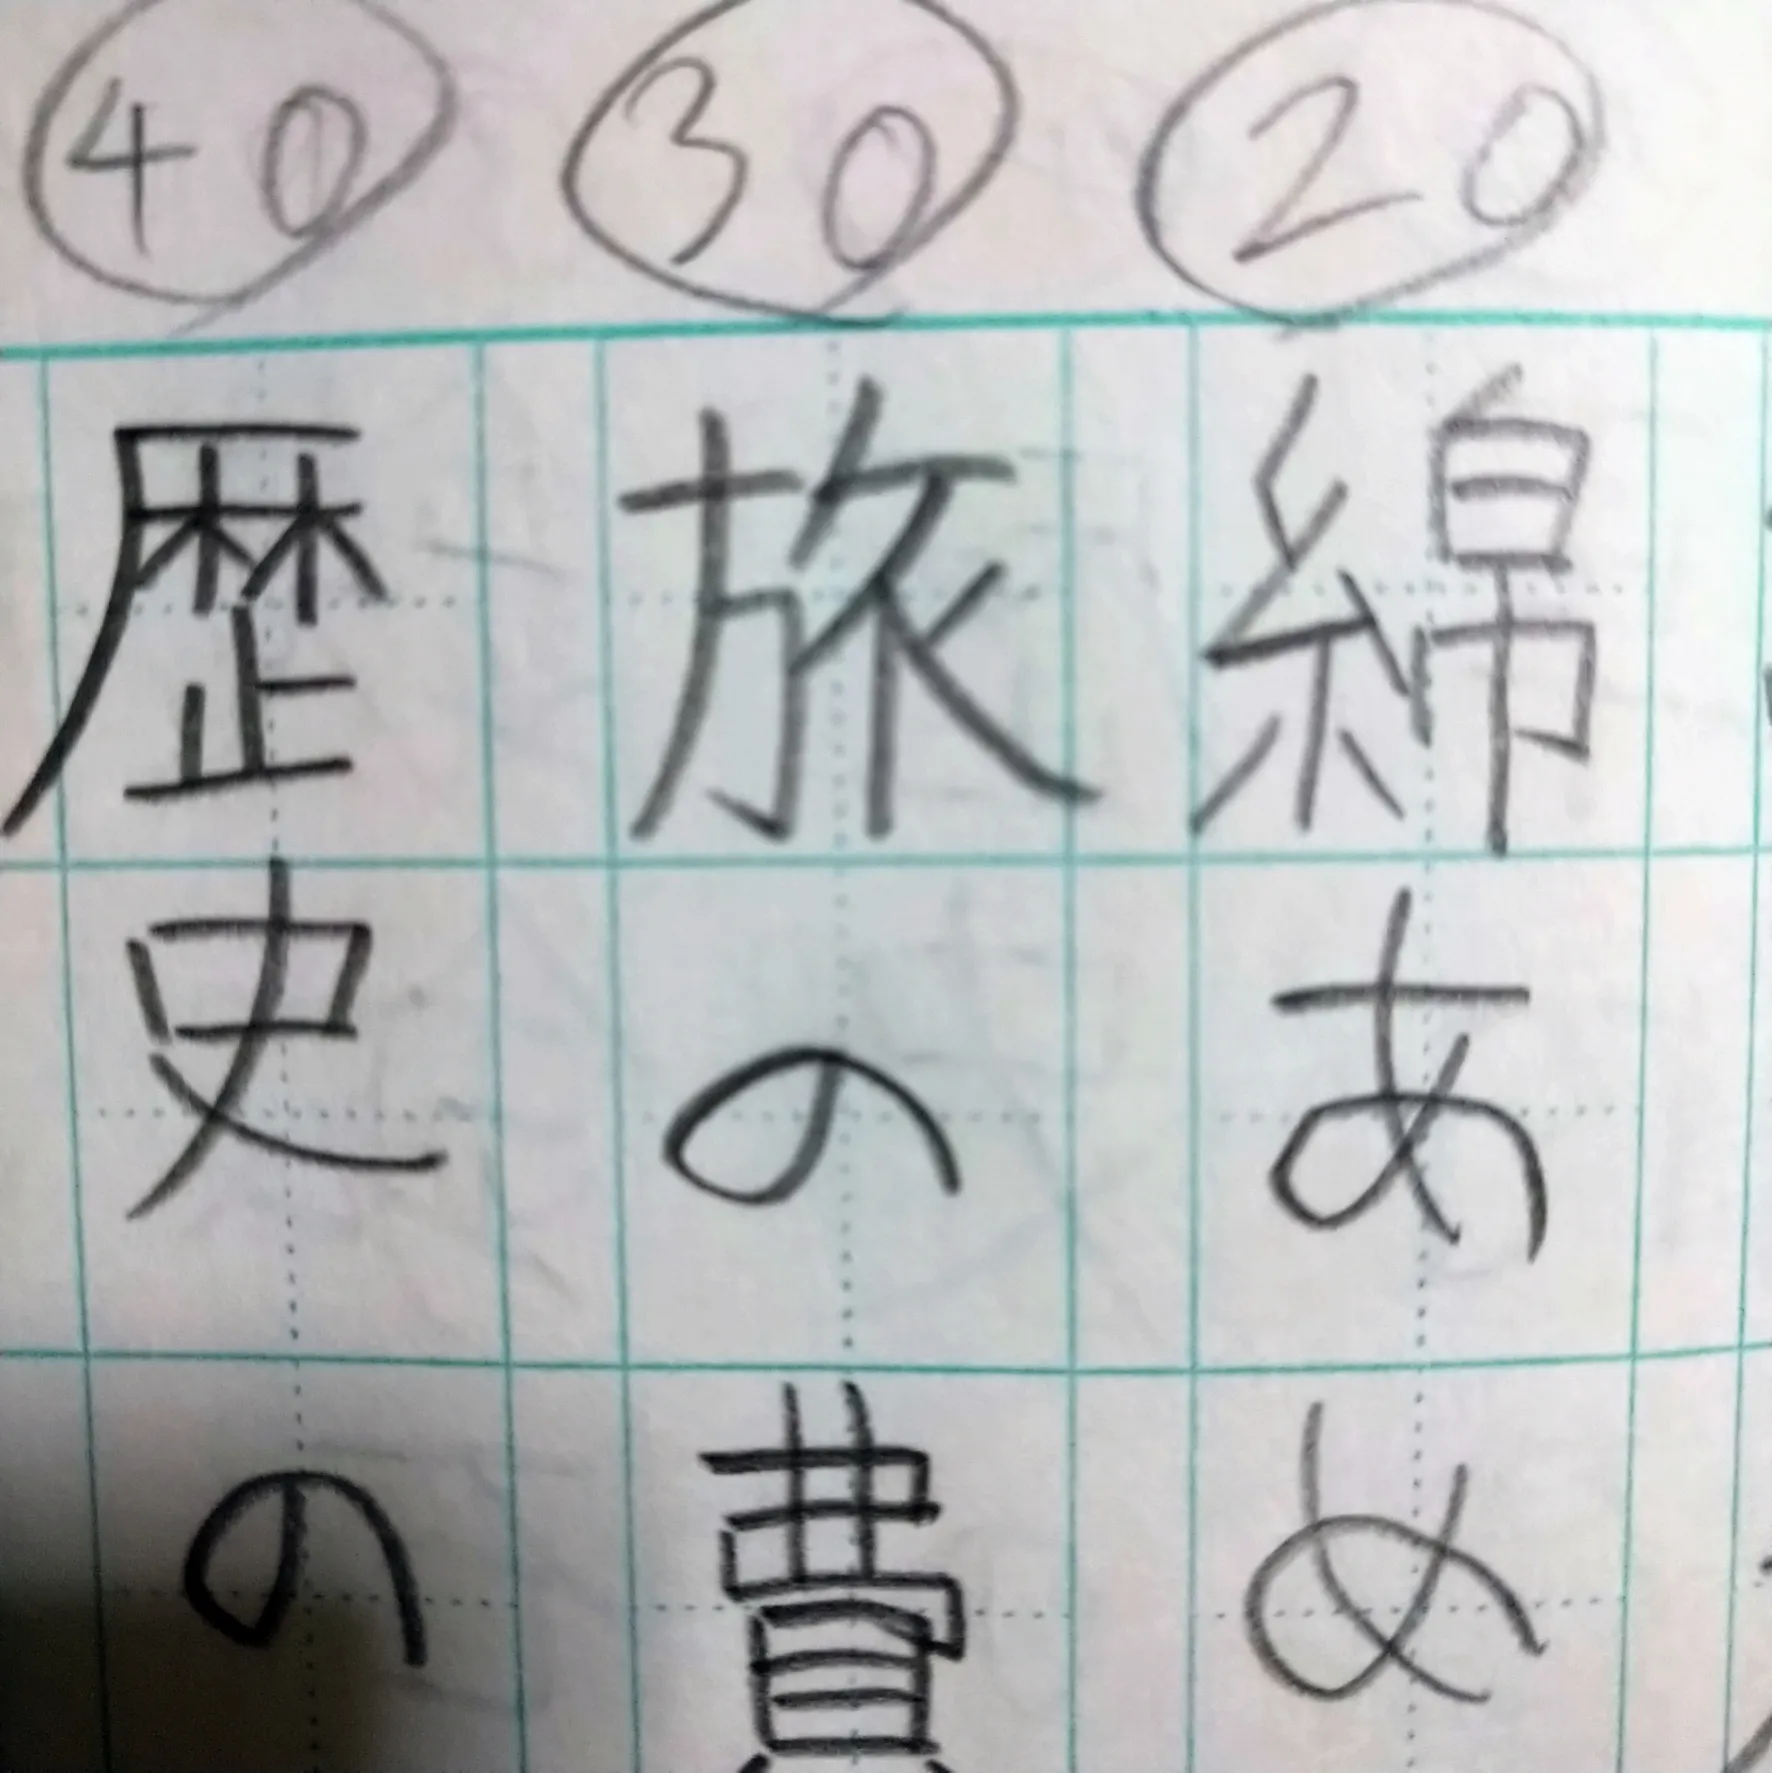 ⑳
綿あめ
㉚
旅の費
㊵
歴史の